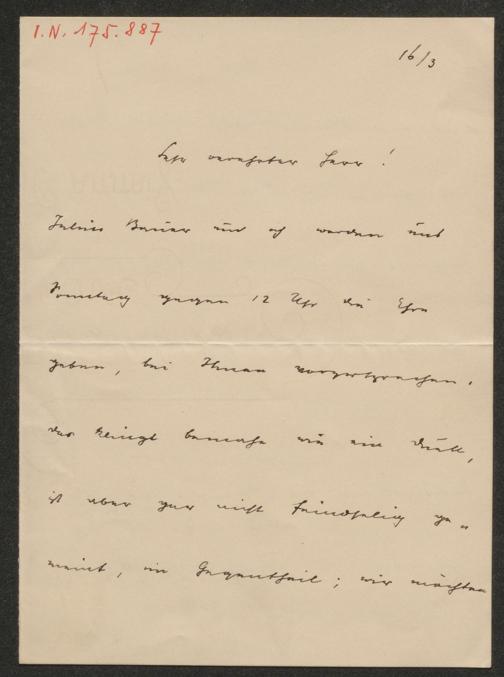 I.N. 175.887
16/3
Sehr verehrter Herr!
Julius Bauer und ich werden uns
Sonntag gegen 12 Uhr die Ehre
geben, bei Ihnen vorzusprechen.
das klingt beinahe wie ein Duell,
ist aber gar nicht feindselig ge-
meint, im Gegentheil; wir möchten